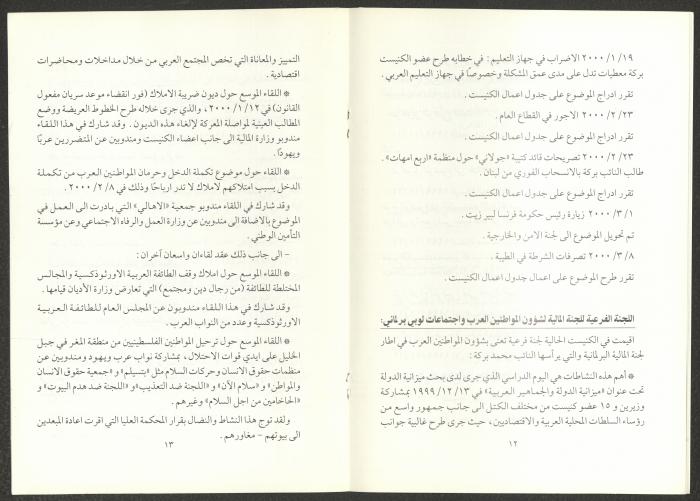 ١٩/١/٢٠٠٠ الاضراب في جهاز التعليم : في خطابه طرح عضو الكنيست
بركة معطيات تدل على مدى عمق المشكلة وخصوصًا في جهاز التعليم العربي .
تقرر ادراج الموضوع على جدول اعمال الكنيست .
٢٣/٢/٢٠٠٠ الاجور في القطاع العام .
تقرر ادراج الموضوع على جدول اعمال الكنيست .
٢٣/٢/٢٠٠٠ تصريحات قائد كتيبة «جولاني» حول منظمة «اربع امهات» .
طالب النائب بركة بالانسحاب الفوري من لبنان .
تقرر ادراج الموضوع على جدول اعمال الكنيست .
١/٣/٢٠٠٠ زيارة رئيس حكومة فرنسا لبير زيت .
تم تحويل الموضوع الى لجنة الامن والخارجية .
٨/٣/٢٠٠٠ تصرفات الشرطة في الطيبة .
تقرر طرح الموضوع على اعمال جدول اعمال الكنيست .
اللجنة الفرعية للجنة المالية لشؤون المواطنين العرب واجتماعات لوبي برلماني:
اقيمت في الكنيست الحالية لجنة فرعية تعنى بشؤون المواطنين العرب في اطار
لجنة المالية البرلمانية والتي يرأسها النائب محمد بركة :
* أهم هذه النشاطات هي اليوم الدراسي الذي جرى لدى بحث ميزانية الدولة
تحت عنوان «ميزانية الدولة والجماهير العربية» في ١٣/١٢/١٩٩٩ بمشاركة
وزيرين و ١٥ عضو كنيست من مختلف الكتل الى جانب جمهور واسع من
رؤساء السلطات المحلية العربية والاقتصاديين ، حيث جرى طرح غالبية جوانب
١٢
التمييز والمعاناة التي تخص المجتمع العربي من خلال مداخلات ومحاضرات
اقتصادية .
* اللقاء الموسع حول ديون ضريبة الاملاك (فور انقضاء موعد سريان مفعول
القانون) في ١٢/١/٢٠٠٠ ، والذي جرى خلاله طرح الخطوط العريضة ووضع
المطالب العينية لمواصلة المعركة لإلغاء هذه الديون . وقد شارك في هذا اللقاء
مندوبو وزارة المالية الى جانب اعضاء الكنيست ومندوبين عن المتضررين عربًا
ويهودًا .
* اللقاء حول موضوع تكملة الدخل وحرمان المواطنين العرب من تكملة
الدخل بسبب امتلاكهم لاملاك لا تدر ارباحًا وذلك في ٨/٢/٢٠٠٠ .
وقد شارك في اللقاء مندوبو جمعية «الاهالي» التي بادرت الى العمل في
الموضوع بالاضافة الى مندوبين عن وزارة العمل والرفاه الاجتماعي وعن مؤسسة
التأمين الوطني .
– الى جانب ذلك عقد لقاءان واسعان آخران :
* اللقاء الموسع حول املاك وقف الطائفة العربية الاورثوذكسية والمجالس
المختلطة للطائفة (من رجال دين ومجتمع) التي تعارض وزارة الأديان قيامها .
وقد شارك في هذا اللقاء مندوبون عن المجلس العام للطائفة العربية
الاورثوذكسية وعدد من النواب العرب .
* اللقاء الموسع حول ترحيل المواطنين الفلسطينيين من منطقة المغر في جبل
الخليل على ايدي قوات الاحتلال ، بمشاركة نواب عرب ويهود ومندوبين عن
منظمات حقوق الانسان وحركات السلام مثل «بتسيلم» و «جمعية حقوق الانسان
والمواطن» و «سلام الآن» و «اللجنة ضد التعذيب» و «اللجنة ضد هدم البيوت» و
«الحاخامين من اجل السلام» وغيرهم .
ولقد توج هذا النشاط والنضال بقرار المحكمة العليا التي اقرت اعادة المبعدين
الى بيوتهم – مغاورهم .
١٣